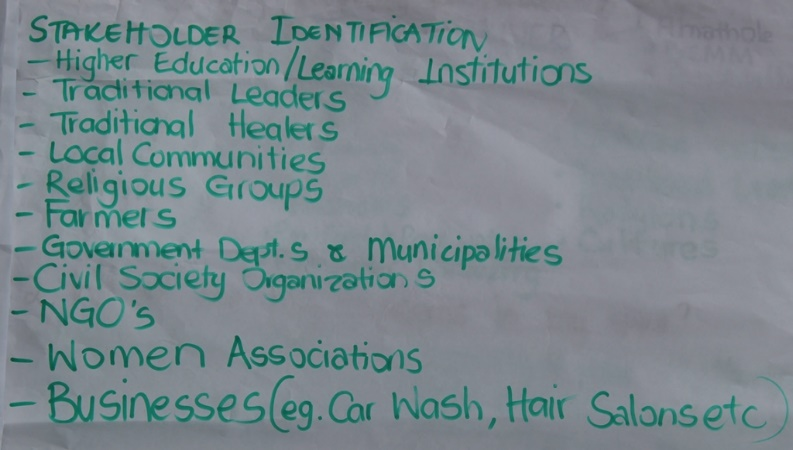 STAKEHOLDER IDENTIFICATION
- Higher Education/Learning Institutions
- Traditional Leaders
- Traditional Healers
- Local Communities
- Religious Groups
- Farmers
- Government Dept.s & Municipalities
- Civil Society Organizations
- NGO's
- Women Associations
- Businesses (eg. Car Wash, Hair Salons etc)